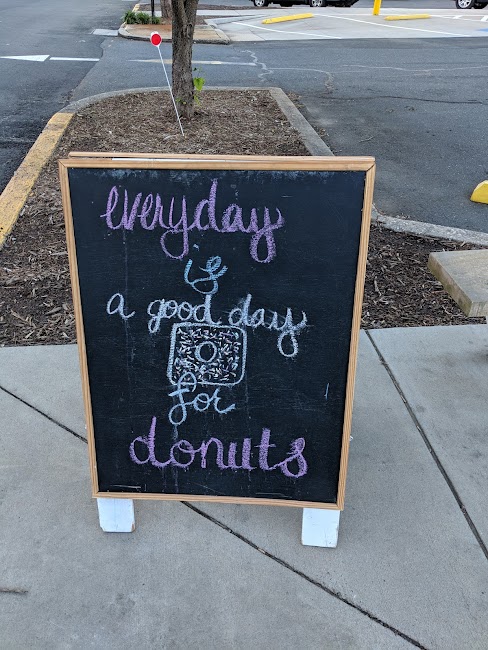 everyday
is
a good day
for
donuts